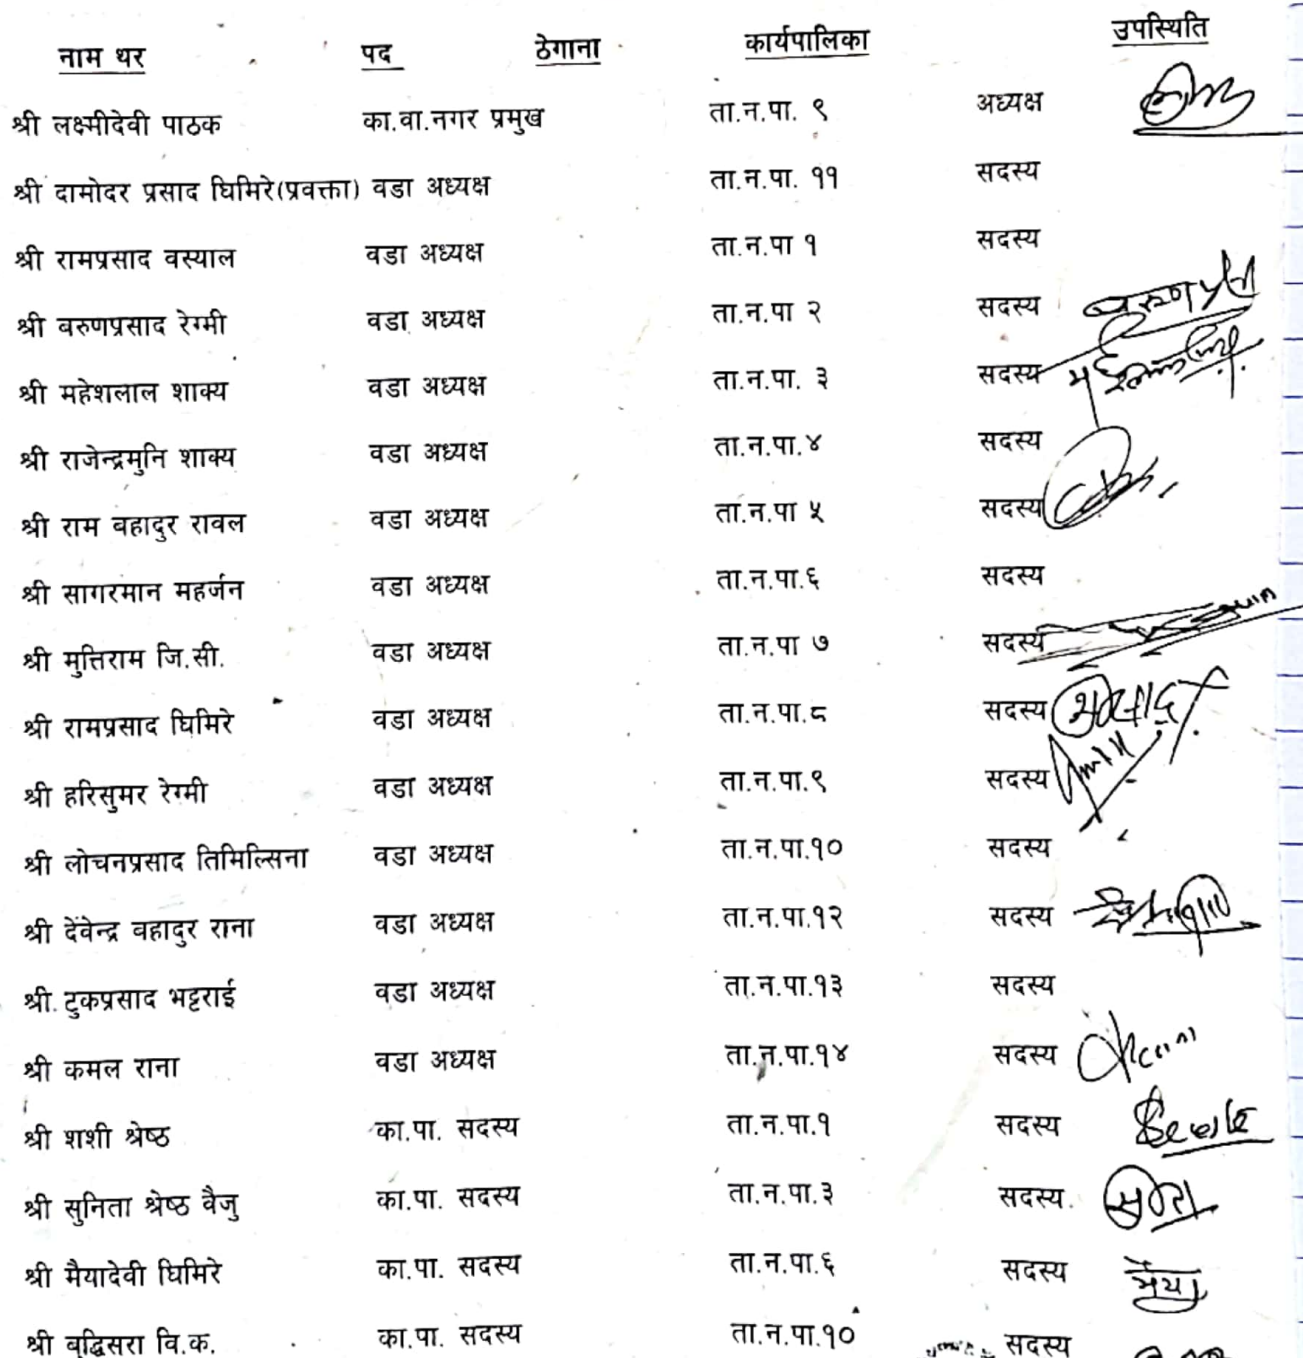 नाम थर पद ठेगाना कार्यपालिका उपस्थिति
श्री लक्ष्मीदेवी पाठक का.वा.नगर प्रमुख ता.न.पा. ९ अध्यक्ष
श्री दामोदर प्रसाद घिमिरे(प्रवक्ता) वडा अध्यक्ष ता.न.पा. ११ सदस्य
श्री रामप्रसाद वस्याल वडा अध्यक्ष ता.न.पा १ सदस्य
श्री बरुणप्रसाद रेग्मी वडा अध्यक्ष ता.न.पा २ सदस्य
श्री महेशलाल शाक्य वडा अध्यक्ष ता.न.पा. ३ सदस्य
श्री राजेन्द्रमुनि शाक्य वडा अध्यक्ष ता.न.पा.४ सदस्य
श्री राम बहादुर रावल वडा अध्यक्ष ता.न.पा ५ सदस्य
श्री सागरमान महर्जन वडा अध्यक्ष ता.न.पा.६ सदस्य
श्री मुक्तिराम जि.सी. वडा अध्यक्ष ता.न.पा ७ सदस्य
श्री रामप्रसाद घिमिरे वडा अध्यक्ष ता.न.पा.८ सदस्य
श्री हरिसुमर रेग्मी वडा अध्यक्ष ता.न.पा.९ सदस्य
श्री लोचनप्रसाद तिमिल्सिना वडा अध्यक्ष ता.न.पा.१० सदस्य
श्री देवेन्द्र वहादुर राना वडा अध्यक्ष ता.न.पा.१२ सदस्य
श्री. टुकप्रसाद भट्टराई वडा अध्यक्ष ता.न.पा.१३ सदस्य
श्री कमल राना वडा अध्यक्ष ता.न.पा.१४ सदस्य
श्री शशी श्रेष्ठ का.पा. सदस्य ता.न.पा.१ सदस्य
श्री सुनिता श्रेष्ठ वैजु का.पा. सदस्य ता.न.पा.३ सदस्य
श्री मैयादेवी घिमिरे का.पा. सदस्य ता.न.पा.६ सदस्य मैया
श्री बुद्धिसरा वि.क. का.पा. सदस्य ता.न.पा.१० सदस्य